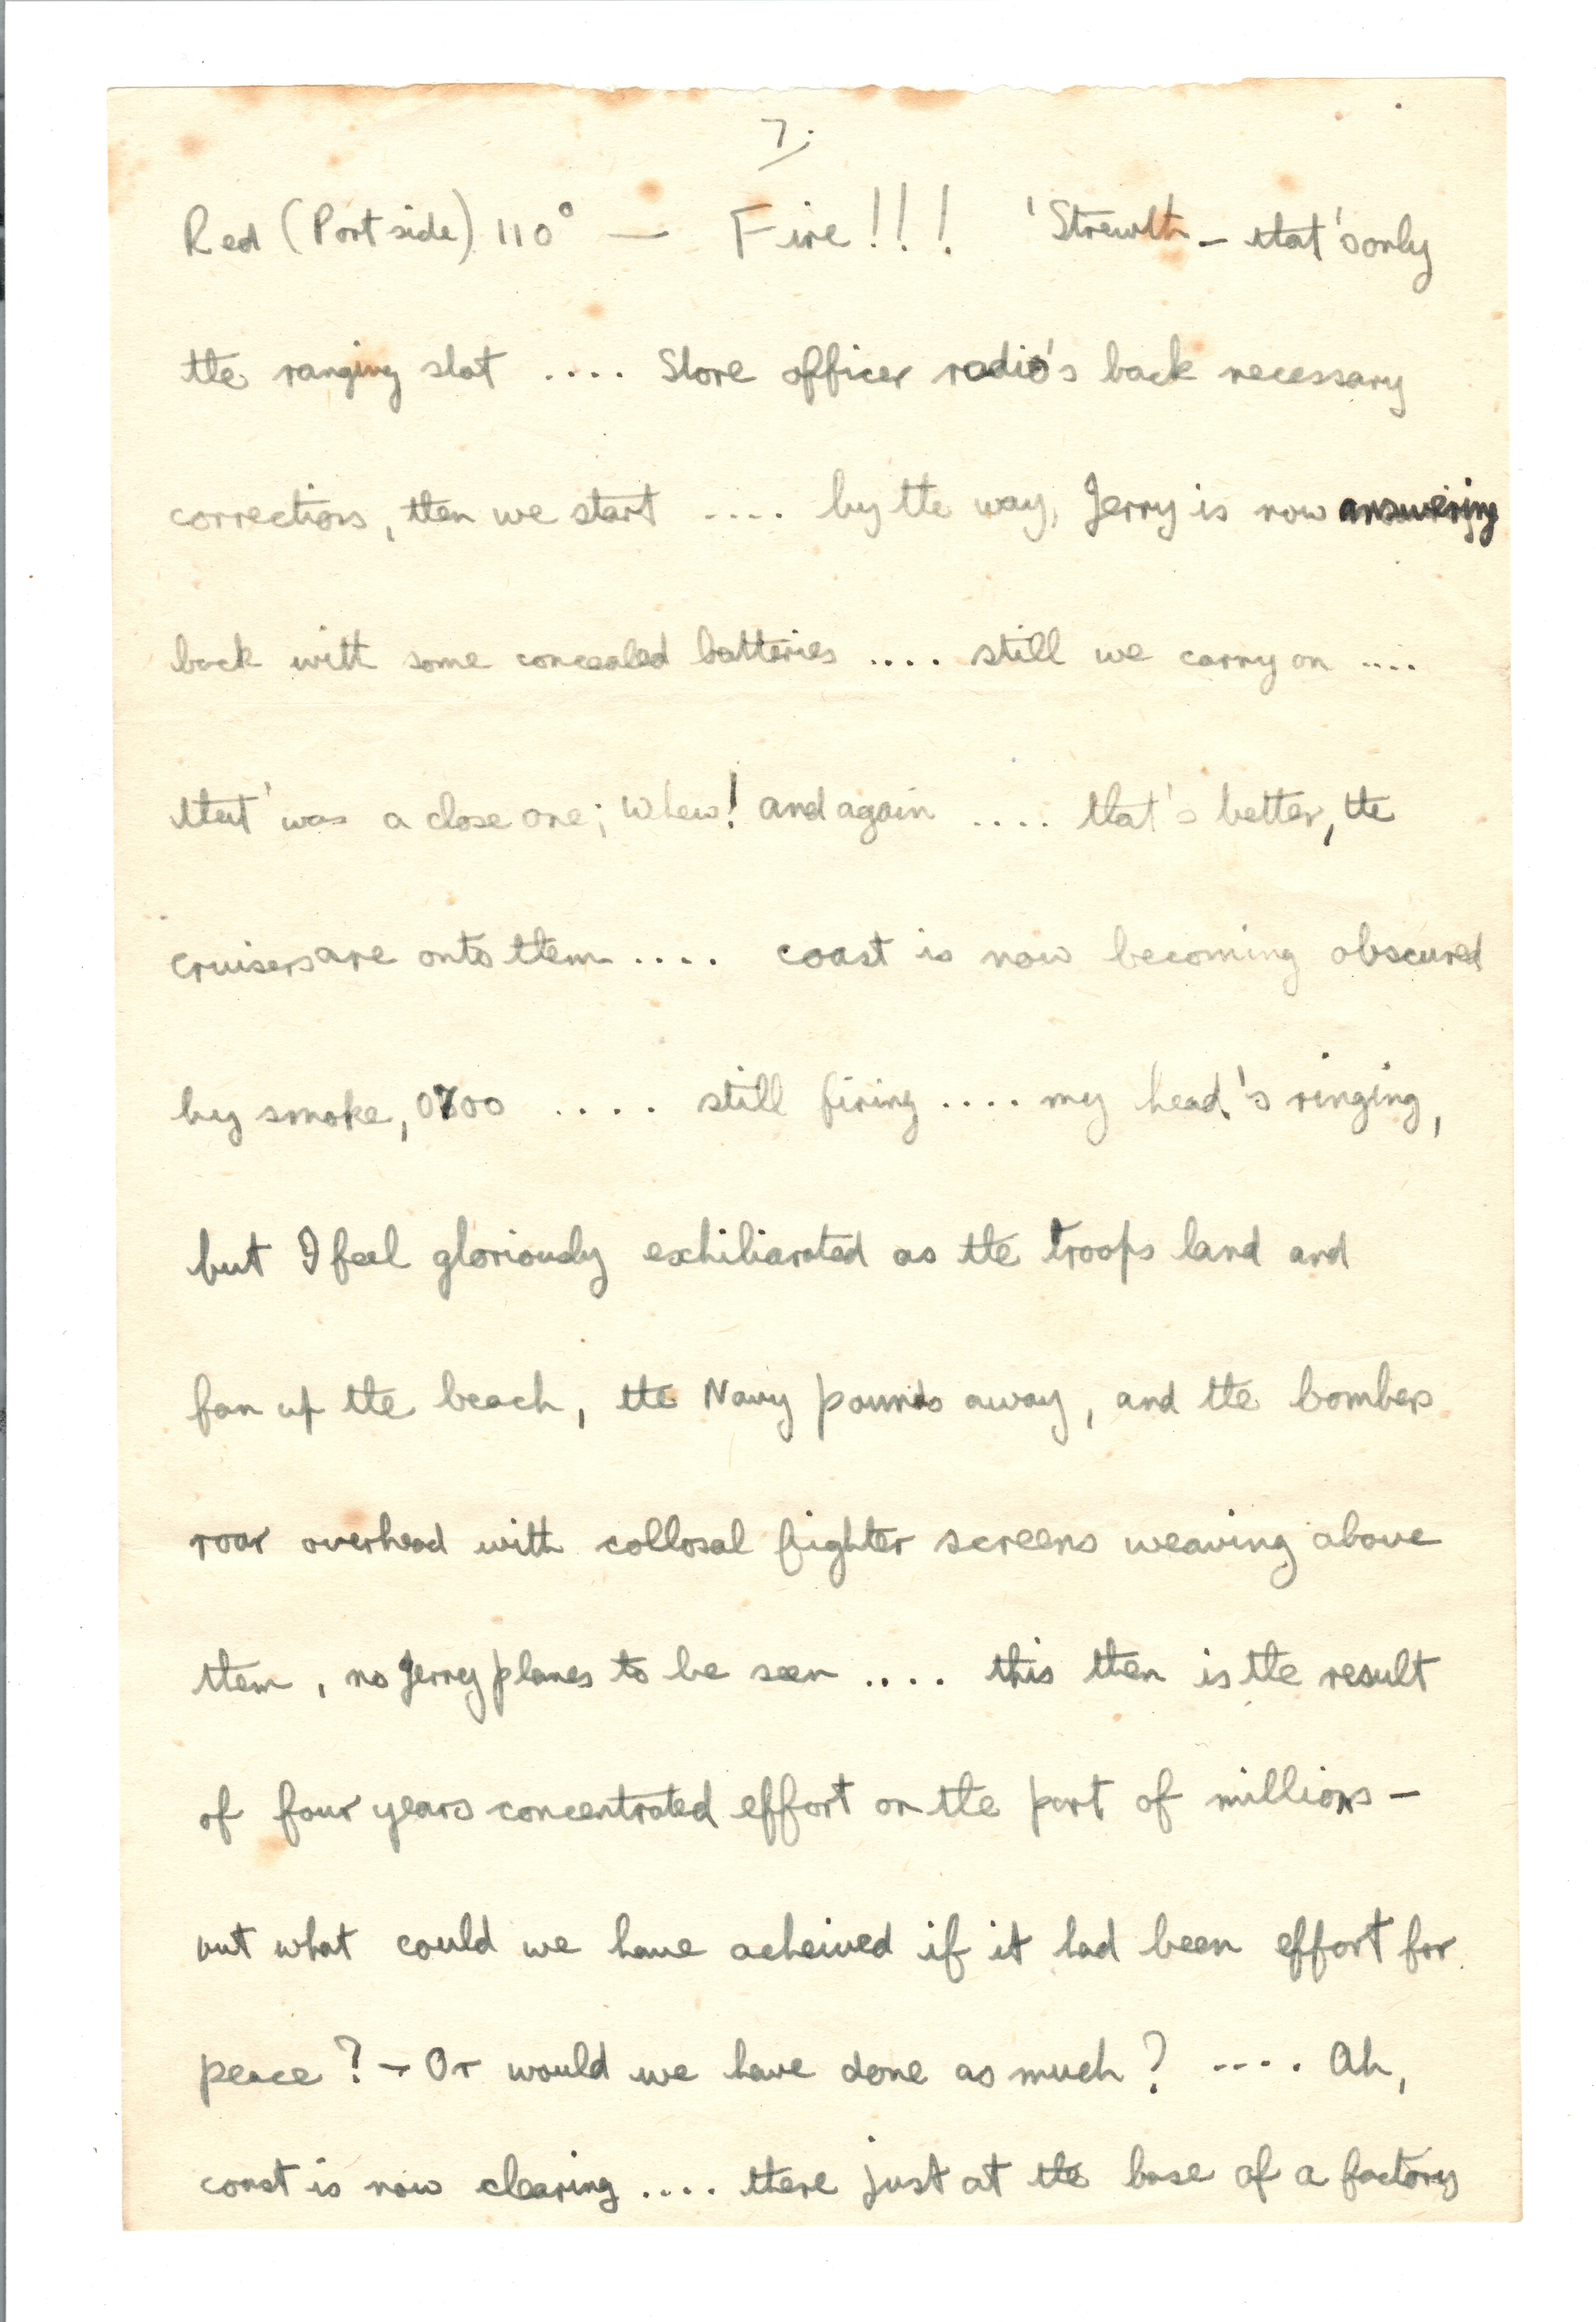 7.
Red (Port side) 110° — Fire!!! 'Strewth - that's only
the ranging shot .... Shore officer radio's back necessary
corrections, then we start .... by the way, Jerry is now answering
back with some concealed batteries .... still we carry on ....
that' was a close one; whew! and again .... that's better, the
cruisers are onto them .... coast is now becoming obscured
by smoke, 0700 .... still firing .... my head's ringing,
but I feel gloriously exhiliarated as the troops land and
fan up the beach, the Navy pounds away, and the bombers
roar overhead with collosal fighter screens weaving above
them, no Jerry planes to be seen .... this then is the result
of four years concentrated effort on the part of millions -
but what could we have acheived if it had been effort for
peace? - Or would we have done as much? .... Ah,
coast is now clearing .... there just at the base of a factory